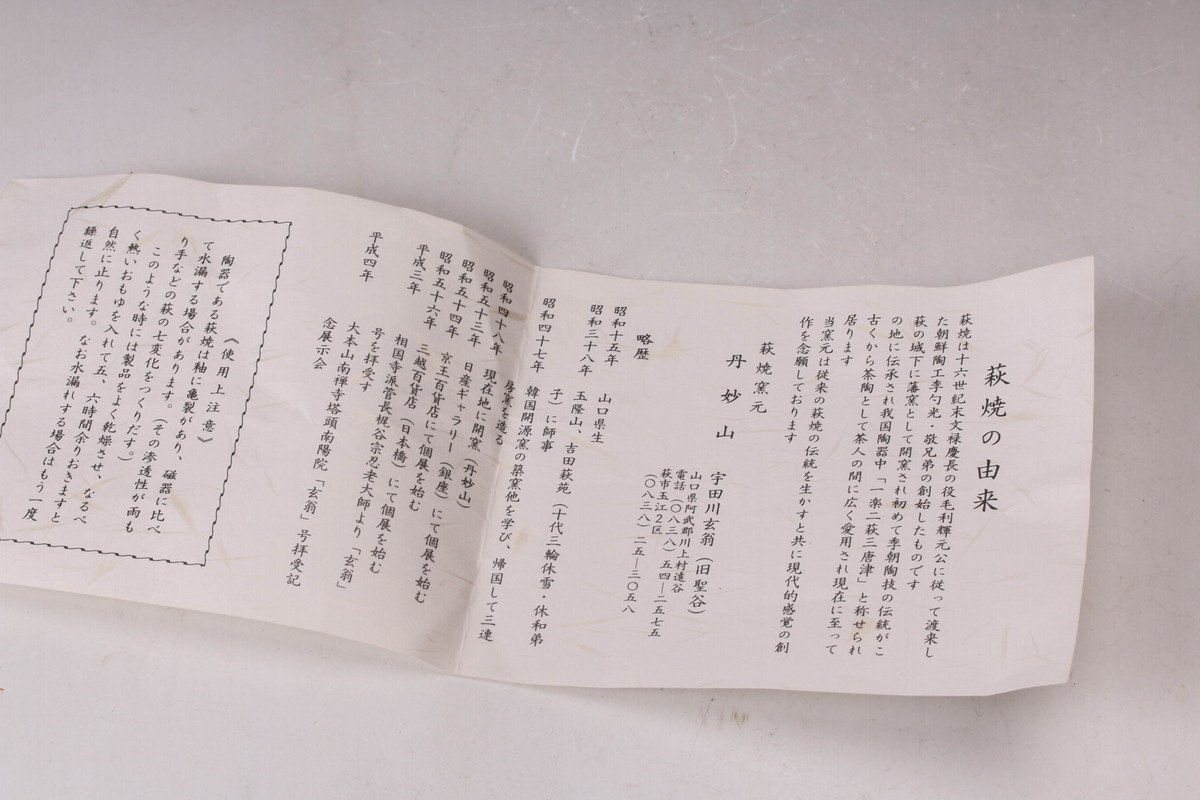 萩焼の由来
萩焼は十六世紀末文禄慶長の役毛利輝元公に従って渡来し
た朝鮮陶工李勺光・敬兄弟の創始したものです
萩の城下に藩窯として開窯され初めて季朝陶技の伝統がこ
の地に伝承され我国陶器中「一楽二萩三唐津」と称せられ
古くから茶陶として茶人の間に広く愛用され現在に至って
居ります
当窯元は従来の萩焼の伝統を生かすと共に現代的感覚の創
作を念願しております
萩焼窯元
丹妙山
宇田川玄翁(旧聖谷)
山口県阿武郡川上村遠谷
電話(〇八三八)五四―二五七五
萩市玉江2区
(〇八三八)二五―三〇五八
略歴
昭和十五年 山口県生
昭和三十八年 玉隆山、吉田萩苑(十代三輪休雪・休和弟
子)に師事
昭和四十七年 韓国開源窯の築窯他を学び、帰国して三連
房窯を造る
昭和四十八年 現在地に開窯(丹妙山)
昭和五十三年 日産ギャラリー(銀座)にて個展を始む
昭和五十四年 京王百貨店にて個展を始む
昭和五十六年 三越百貨店(日本橋)にて個展を始む
平成三年 相国寺派管長梶谷宗忍老大師より「玄翁」
号を拝受す
平成四年 大本山南禅寺塔頭南陽院「玄翁」号拝受記
念展示会
《使用上注意》
陶器である萩焼は釉に亀裂があり、磁器に比べ
て水漏する場合があります。(その滲透性が雨も
り手などの萩の七変化をつくりだす。)
このような時には製品をよく乾燥させ、なるべ
く熱いおもゆを入れて五、六時間余りおきますと
自然に止ります。なお水漏れする場合はもう一度
繰返して下さい。